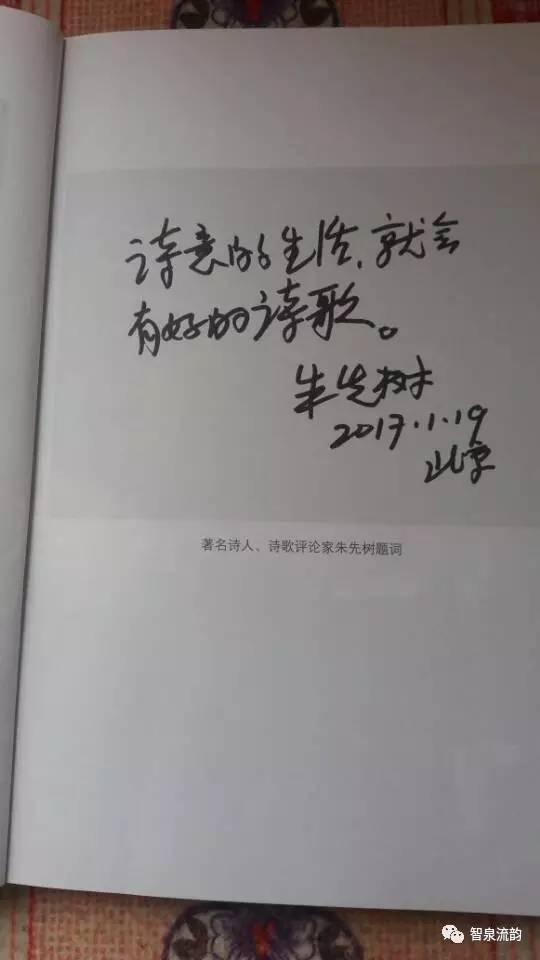 诗意的生活,就会
有好的诗歌。
朱先树
2017.1.19
北京
著名诗人、诗歌评论家朱先树题词
智泉流韵